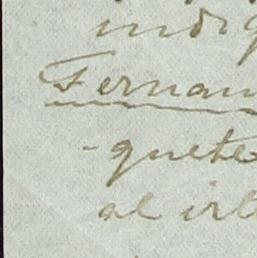 indig
Fernan
-quete
al irl